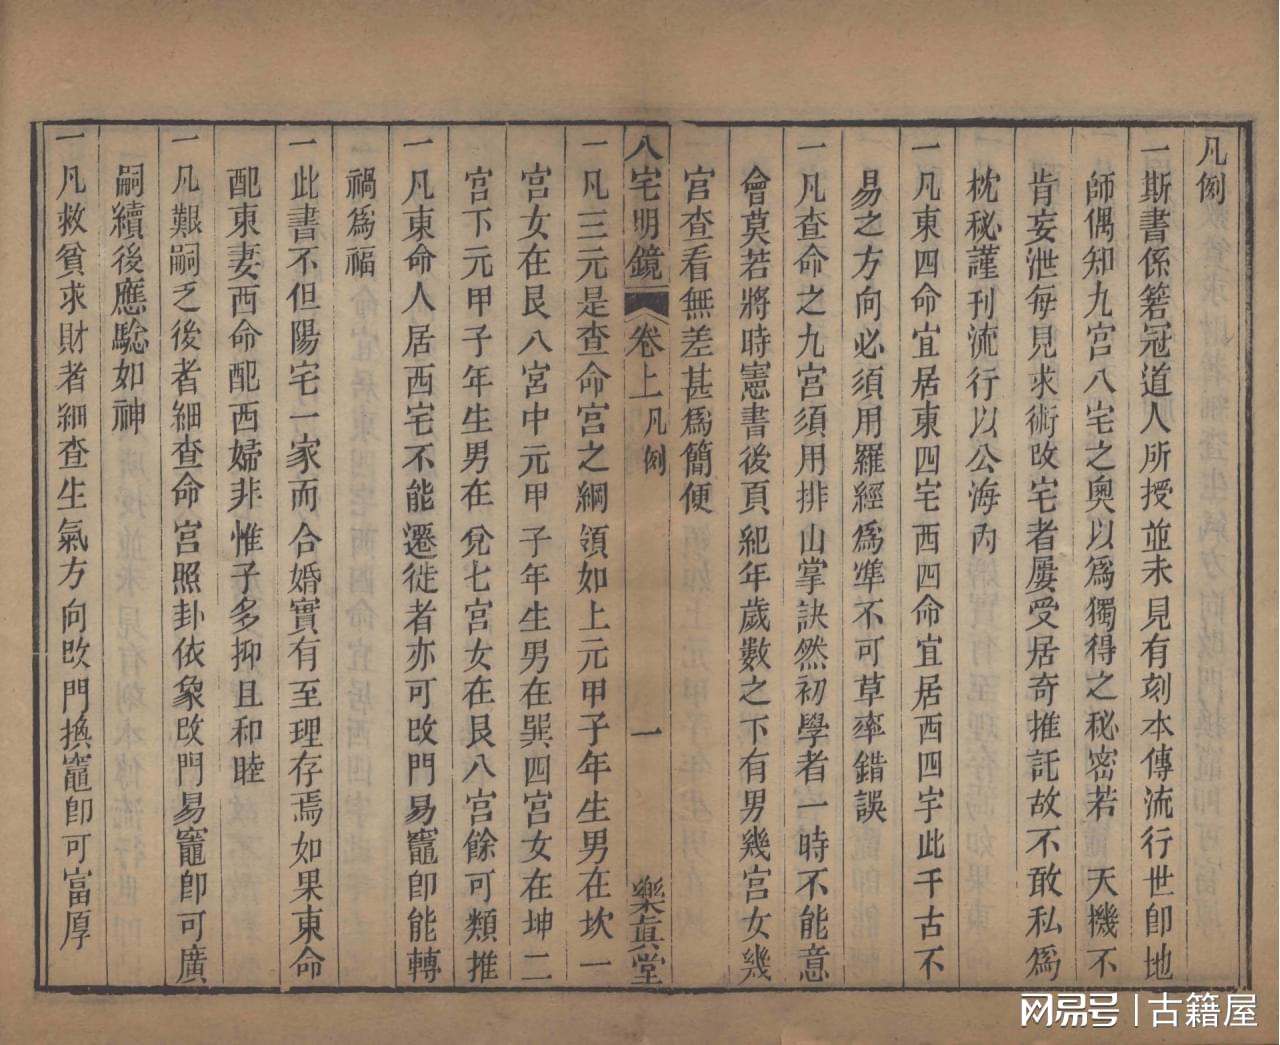 凡例
一斯書係箬冠道人所授並未見有刻本傳流行世卽地
師偶知九宮八宅之奧以為獨得之秘密若 天機不
肯妄泄每見求術改宅者屢受居奇推託故不敢私為
枕秘謹刊流行以公海內
一凡東四命宜居東四宅西四命宜居西四宇此千古不
易之方向必須用羅經為凖不可草率錯誤
一凡查命之九宮須用排山掌訣然初學者一時不能意
會莫若將時憲書後頁紀年歲數之下有男幾宮女幾
宮查看無差甚為簡便
八宅明鏡 卷上 凡例 一 樂真堂
一凡三元是查命宮之綱領如上元甲子年生男在坎一
宮女在艮八宮中元甲子年生男在巽四宮女在坤二
宮下元甲子年生男在兌七宮女在艮八宮餘可類推
一凡東命人居西宅不能遷徙者亦可改門易竈卽能轉
禍為福
一此書不但陽宅一家而合婚實有至理存焉如果東命
配東妻西命配西婦非惟子多抑且和睦
一凡艱嗣乏後者細查命宮照卦依象改門易竈卽可廣
嗣續後應驗如神
一凡救貧求財者細查生氣方向改門換竈卽可富厚
网易号 | 古籍屋